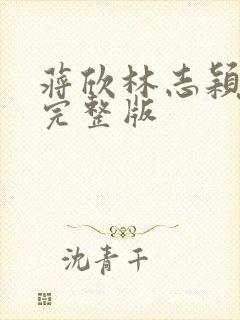 蒋欣林志颖
完整版
沈青千